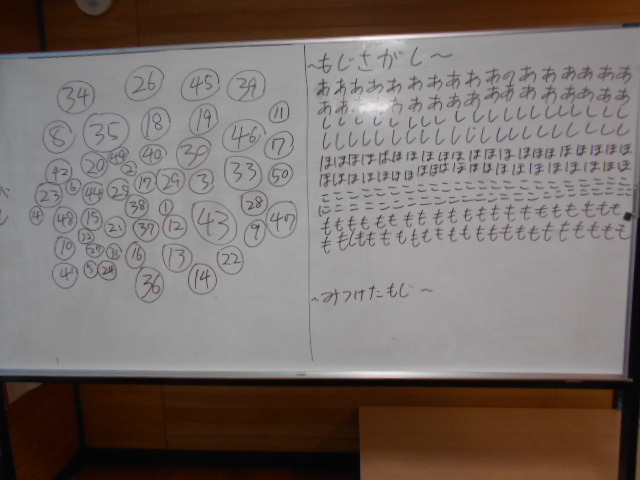 34 26 45 39
8 35 18 19 46 11
42 20 49 2 40 30 33 7
23 6 44 25 17 29 3 50
4 48 15 38 1 43 28 47
21 37 12 9
10 27 16 13 22
41 5 24 36 14
~もじさがし~
ああああああああああのああああああああ
あああああああああああああああああああ
しししししししししししししししししししし
ししししししししじししししししししししし
ほほほほばほほほほほほほほほほほほほほほ
ほほほほほほほほはほほほほほほほほほほ
ここここここここここここここここここ
にこここここここここここここここここ
ももももももももももももももももももも
ももしもももももももももももももももももも
~みつけたもじ~